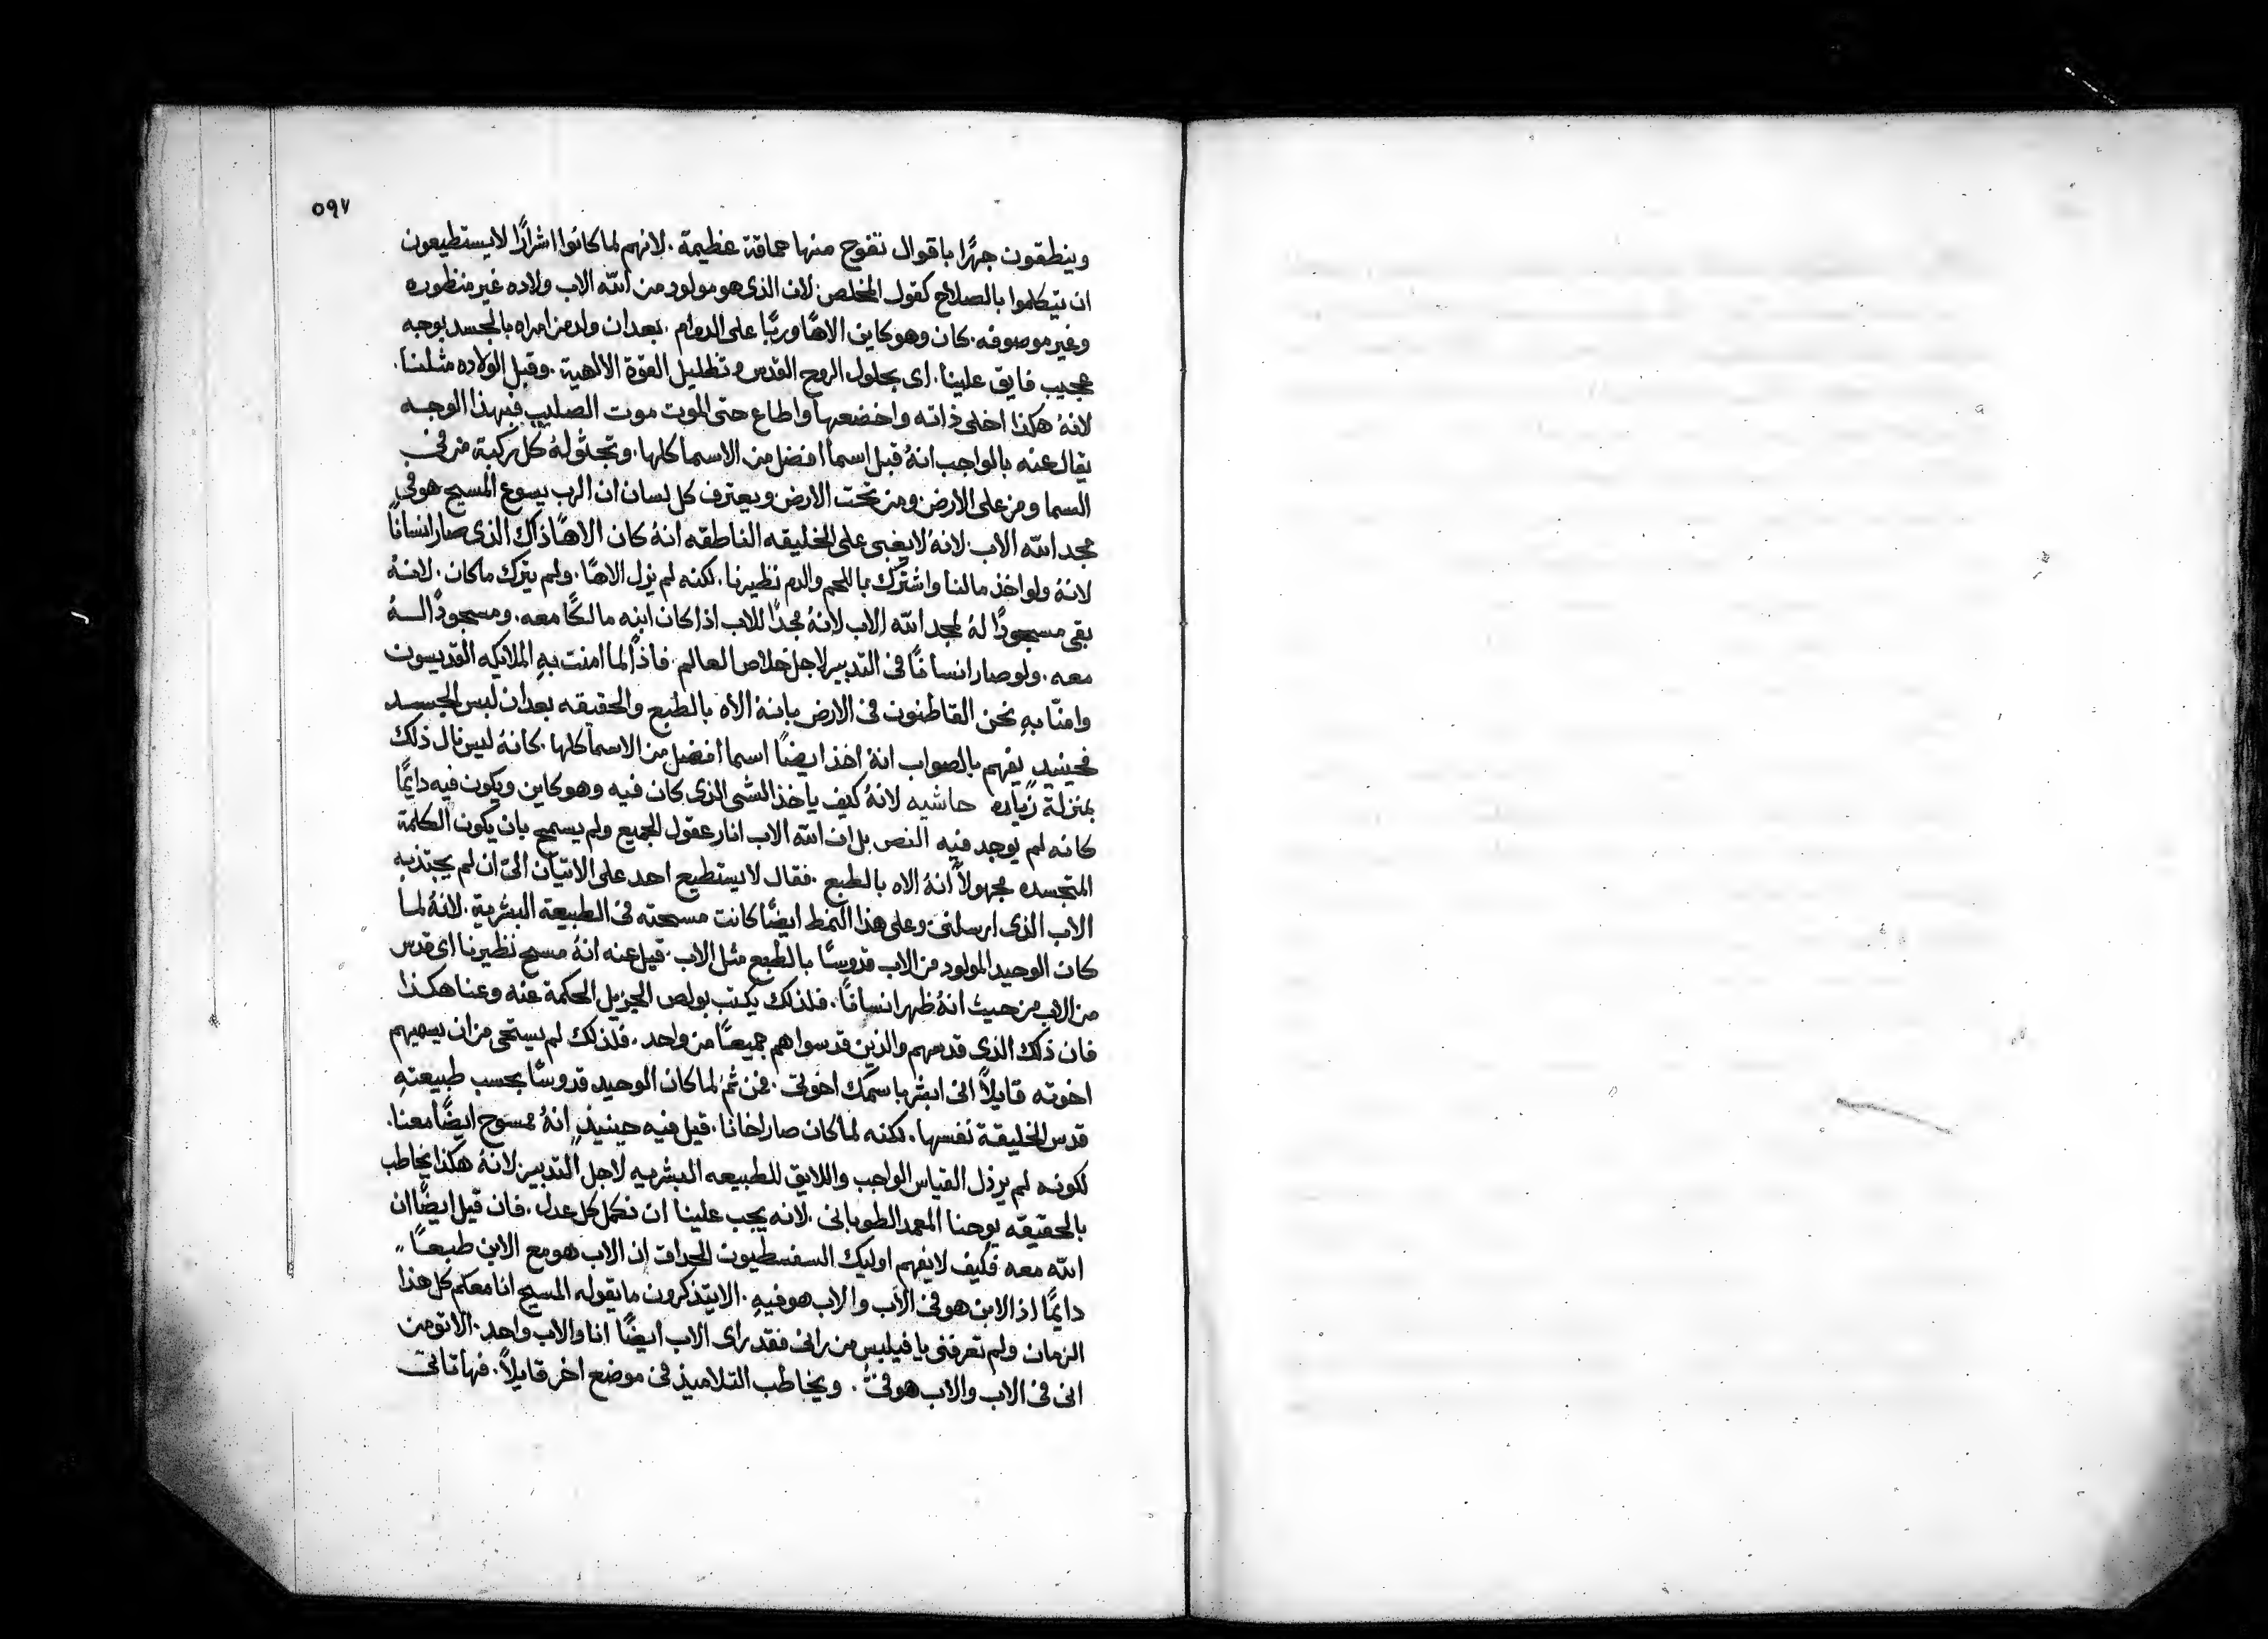 ٥٩٧
وينطقون جهرًا باقوال تفوح منها حماقة عظيمة. لانهم لما كانوا اشرارًا لا يستطيعون
ان يتكلموا بالصلاح كقول المخلص: لان الذى هو مولود من الله الاب ولاده غير منظوره
وغير موصوفه. كان وهو كاين الاهًا وربًا على الدوام. بعد ان ولد من امراه بالجسد بوجه
عجيب فايق علينا. اى بحلول الروح القدس وتظليل القوة الالهية. وقبل الولاده مثلنا.
لانهُ هكذا اخلى ذاته واخضعها واطاع حتى الموت موت الصليب فبهذا الوجه
يقال عنه بالواجب انهُ قبل اسمًا افضل من الاسما كلها. وتجثو لهُ كل ركبة من فى
السما ومن على الارض ومن تحت الارض ويعترف كل لسان ان الرب يسوع المسيح هو فى
مجد الله الاب. لانهُ لا يغبى على الخليقه الناطقه انهُ كان الاهًا ذاك الذى صار انسانًا
لانهُ ولو اخذ مالنا واشترك باللحم والدم نظيرنا. لكنه لم يزل الاهًا. ولم يترك ما كان. لانهُ
بقى مسجودًا لهُ لمجد الله الاب لانهُ مجدًا للاب اذا كان ابنه مالكًا معه. ومسجودًا لهُ
معه. ولو صار انسانًا فى التدبير لاجل خلاص العالم. فاذًا لما امنت بهِ الملايكه القديسون
وامنّا بهِ نحن القاطنون فى الارض بانهُ الاه بالطبع والحقيقه بعد ان لبس الجسد
فحينيدٍ يفهم بالصواب انهُ اخذ ايضًا اسما افضل من الاسما كلها. كانهُ ليس نال ذلك
بمنزلة زياده حاشيه لانهُ كيف ياخذ الشى الذى كان فيه وهو كاين ويكون فيه دايمًا
كانه لم يوجد فيه النص بل ان الله الاب انار عقول الجميع ولم يسمح بان يكون الكلمة
المتجسده مجهولاً انهُ الاه بالطبع. فقال لا يستطيع احد على الاتيان الىّ ان لم يجتذبه
الاب الذى ارسلنى وعلى هذا النمط ايضًا كانت مسحته فى الطبيعة البشرية. لانهُ لما
كان الوحيد المولود من الاب قدوسًا بالطبع مثل الاب. قيل عنه انهُ مسح نظيرنا اى قدس
من الاب من حيث انهُ ظهر انسانًا. فلذلك يكتب بولص الجزيل الحكمة عنه وعنا هكذا
فان ذلك الذى قدسهم والذين قدسوا هم جميعًا من واحد. فلذلك لم يستحى من ان يسميهم
اخوته قايلاً انى ابشر باسمك اخوتى. فمن ثمّ لما كان الوحيد قدوسًا بحسب طبيعتهِ
قدس الخليقة نفسها. لكنه لما كان صار اخانا. قيل فيه حينيذٍ انهُ ممسوح ايضًا معنا.
لكونه لم يرذل القياس الواجب واللايق للطبيعه البشريه لاجل التدبير: لانهُ هكذا يخاطب
بالحقيقه يوحنا المعمد الطوبانى. لانه يجب علينا ان نكمل كل عدل. فان قيل ايضًا ان
الله معه فكيف لا يفهم اوليك السفسطيون الحداق ان الاب هو مع الابن طبعًا
دايمًا اذ الابن هو فى الاب والاب هو فيهِ. الا يتذكرون ما يقوله المسيح انا معكم كل هذا
الزمان ولم تعرفنى يا فيلبس من رانى فقد راى الاب ايضًا انا والاب واحد. الا تومن
انى فى الاب والاب هو فىّ. ويخاطب التلاميذ فى موضع اخر قايلاً. فها تاتى